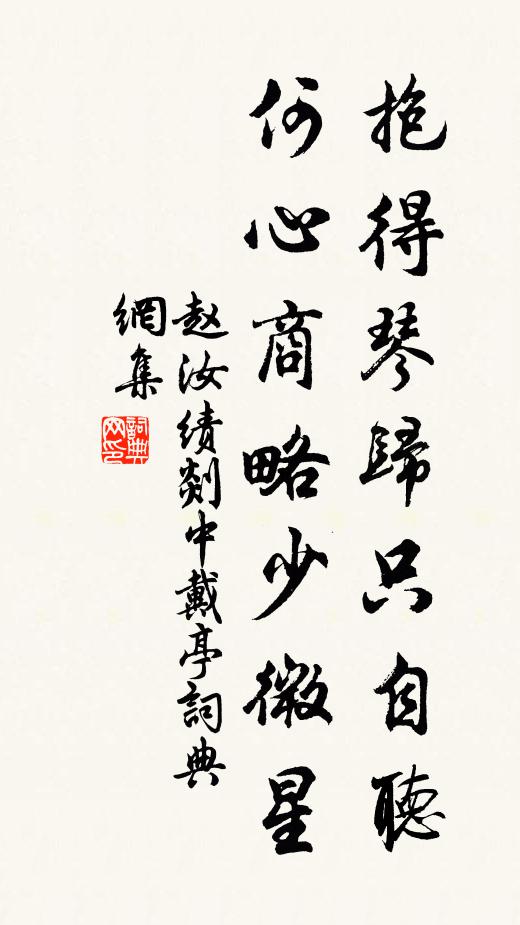 抱得琴歸只自聽
何心商略少微星
赵汝绩剡中戴亭詞典
網集
詞典网印